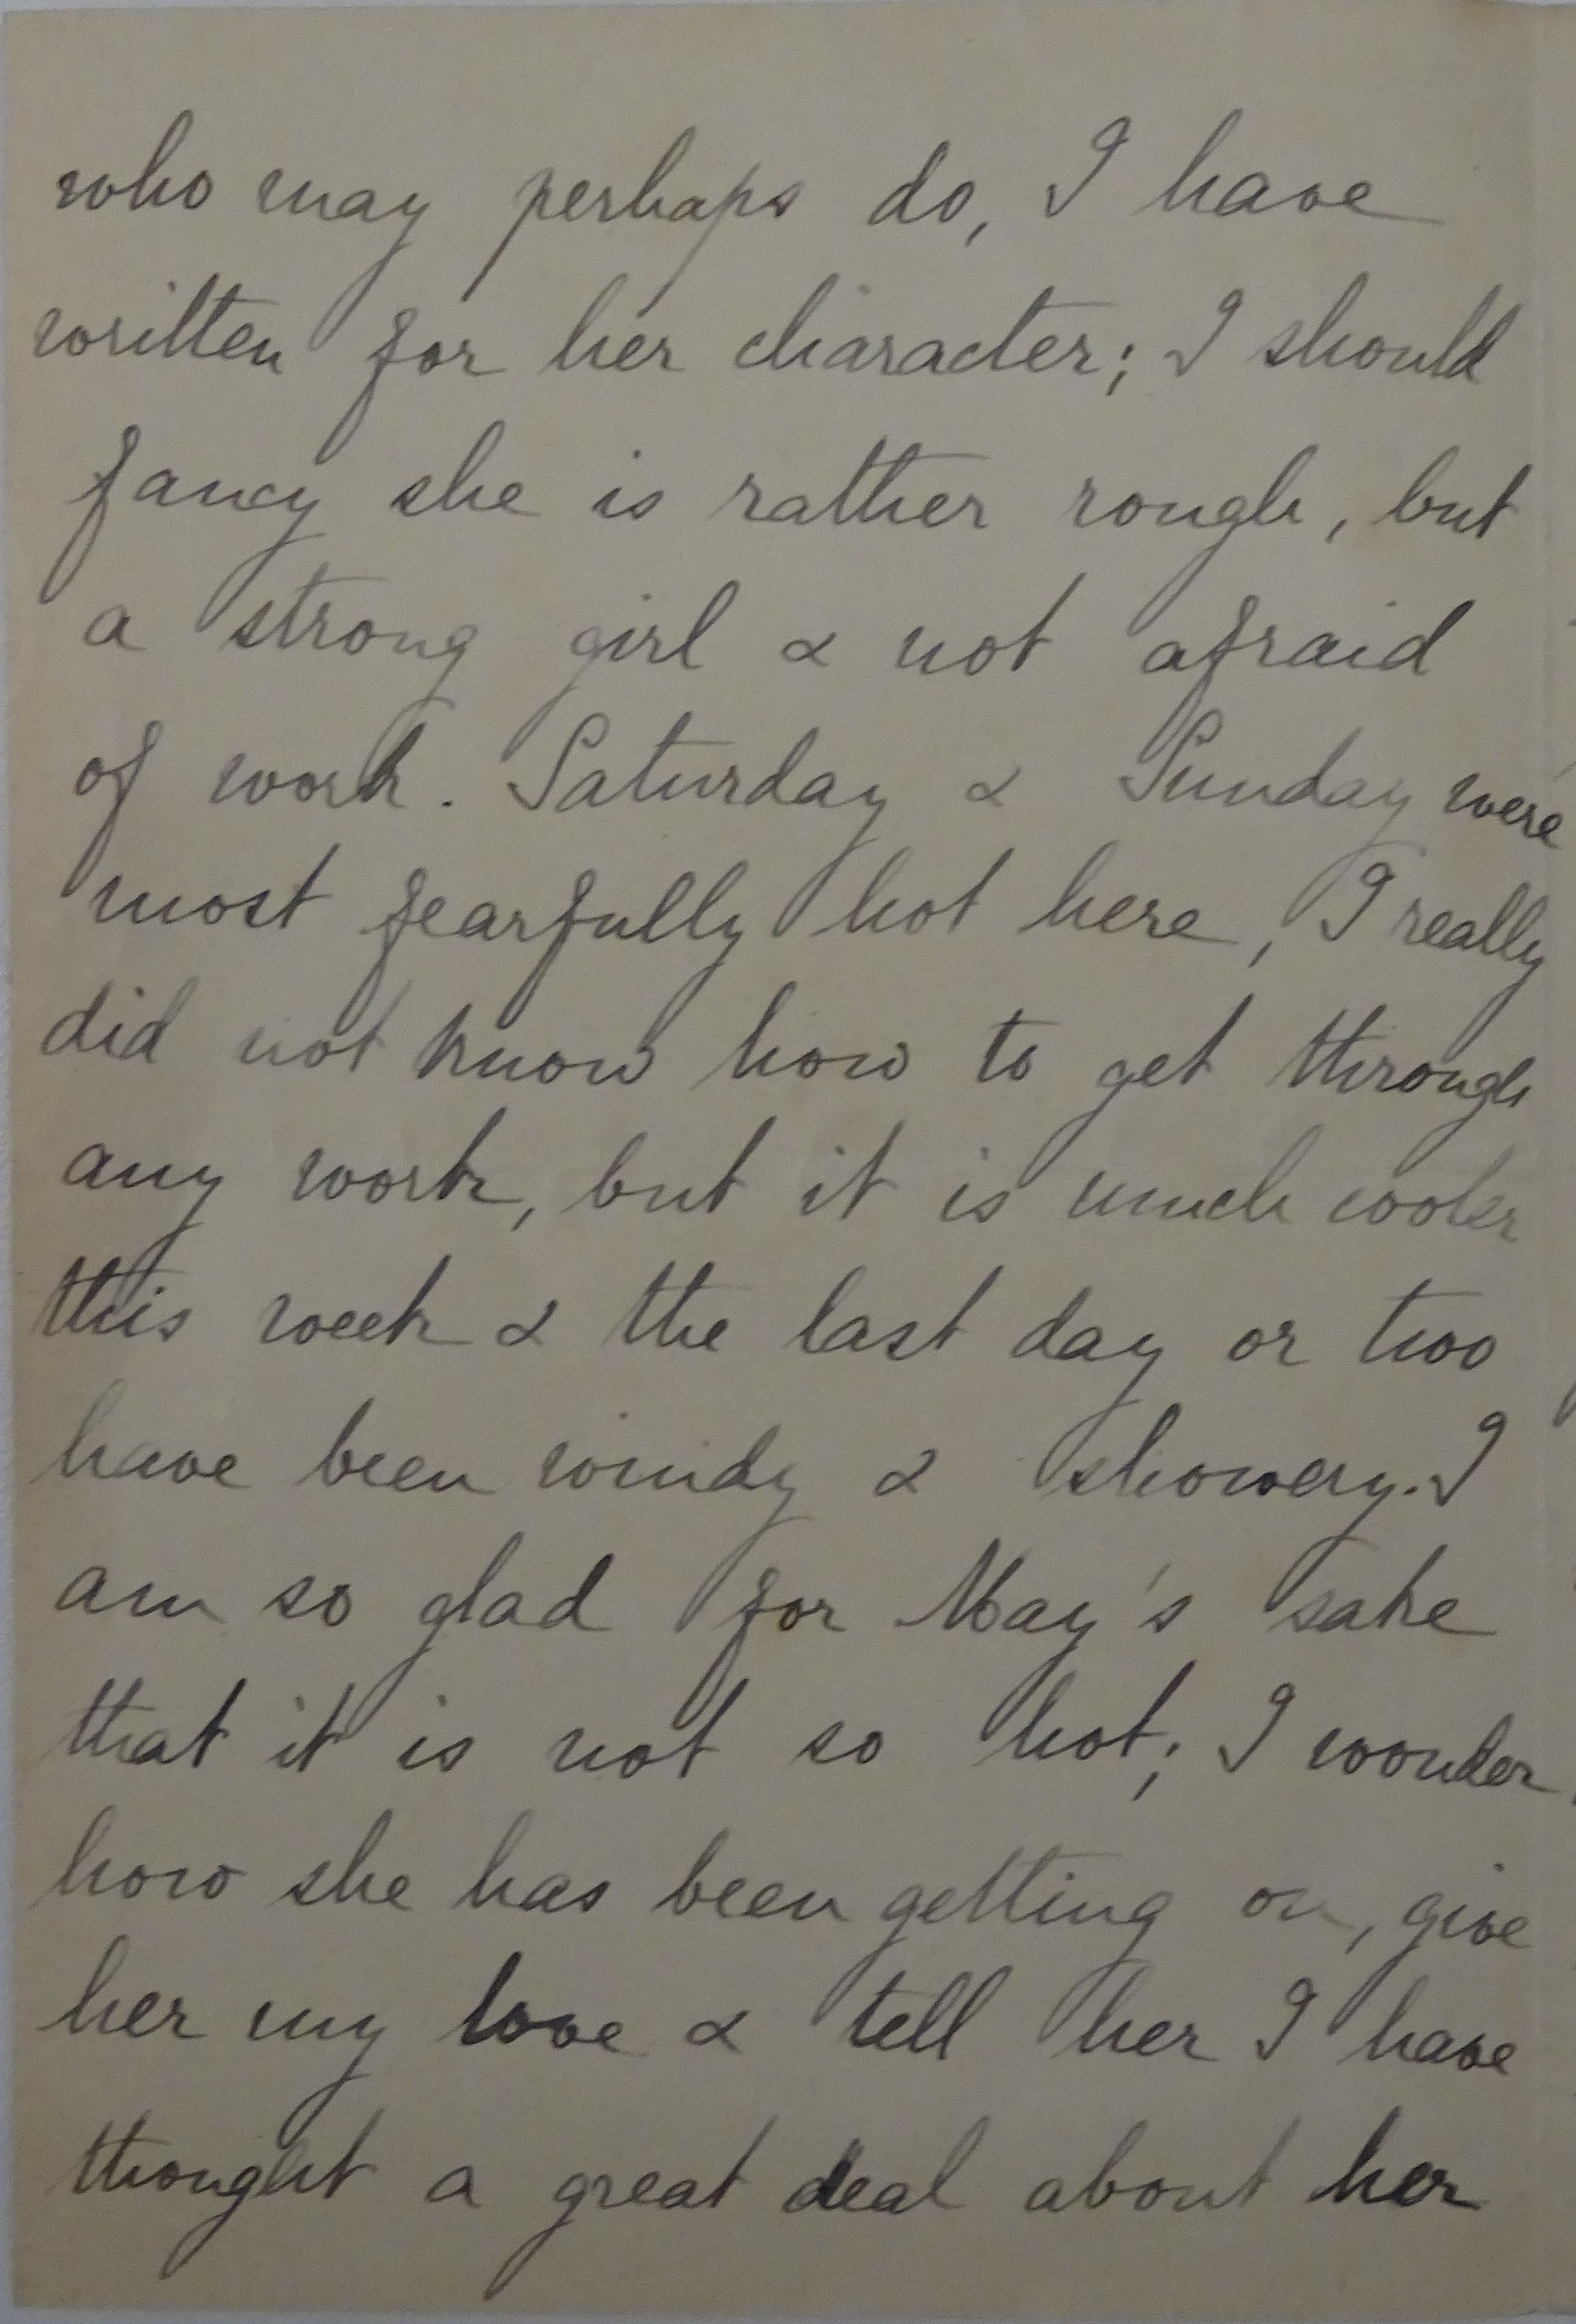 who may perhaps do, I have
written for her character; I should
fancy she is rather rough, but
a strong girl & not afraid
of work. Saturday & Sunday were
most fearfully hot here, I really
did not know how to get through
any work, but it is much cooler
this week & the last day or two
have been windy & showery. I
am so glad for May's sake
that it is not so hot; I wonder
how she has been getting on, give
her my love & tell her I have
thought a great deal about her